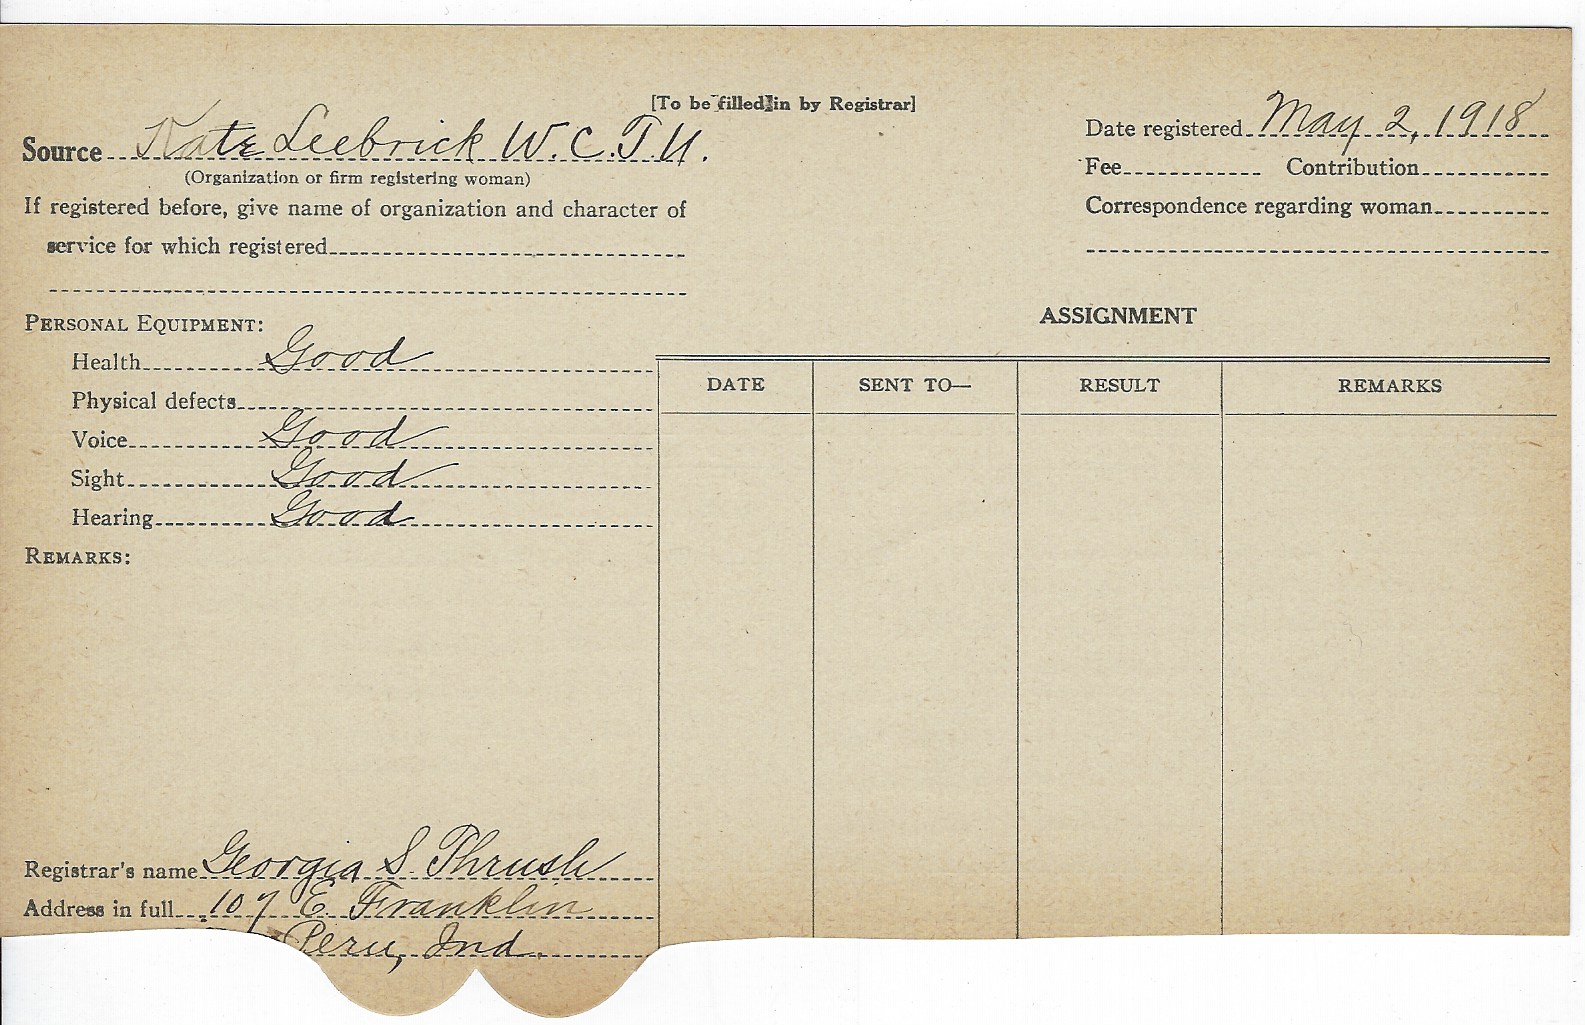 [To be filled in by Registrar]
Source Kate Leebrick W.C.T.U.
(Organization or firm registering woman)
If registered before, give name of organization and character of
service for which registered
PERSONAL EQUIPMENT:
Health Good
Physical defects
Voice Good
Sight Good
Hearing Good
REMARKS:
Registrar's name Georgia S. Thrush
Address in full 107 E. Franklin
Peru, Ind.
Date registered May 2, 1918
Fee Contribution
Correspondence regarding woman
ASSIGNMENT
DATE SENT TO— RESULT REMARKS